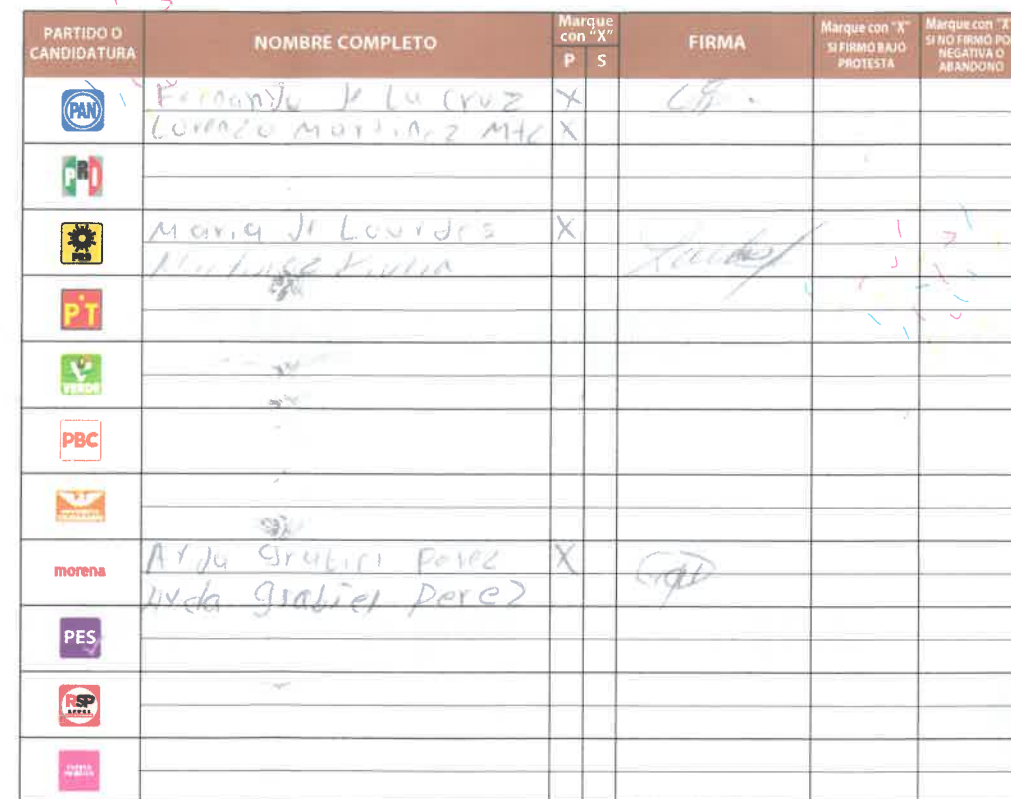 PARTIDO O CANDIDATURA
NOMBRE COMPLETO
Marque con "X"
P S
FIRMA
Marque con "X" SI FIRMÓ BAJO PROTESTA
Marque con "X" SI NO FIRMÓ POR NEGATIVA O ABANDONO
PAN
Fernando de La Cruz X
Lorenzo Martinez X
PRI
PRD
Maria de Lourdes X
Martinez
PT
VERDE
PBC
morena
Perez X
Perez
PES
RSP